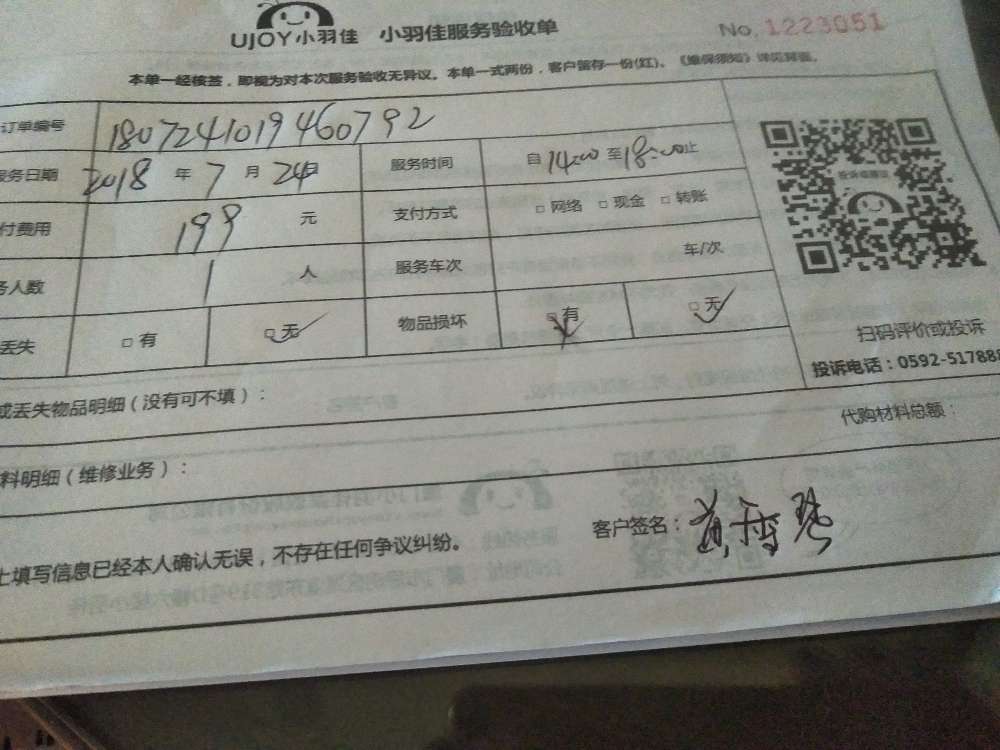 UJOY小羽佳 小羽佳服务验收单 No. 1223051
本单一经核签，即视为对本次服务验收无异议。本单一式两份，客户留存一份(红)。《维保须知》详见背面。
订单编号 1807241019460792
服务日期 2018 年 7 月 24日 服务时间 自 14:00 至 18:00 止
付费用 199 元 支付方式 □ 网络 □ 现金 □ 转账
务人数 1 人 服务车次 车/次
丢失 □ 有 □ 无 物品损坏 □ 有 □ 无
扫码评价或投诉
投诉电话：0592-517888
或丢失物品明细（没有可不填）：
代购材料总额：
料明细（维修业务）：
上填写信息已经本人确认无误，不存在任何争议纠纷。
客户签名：